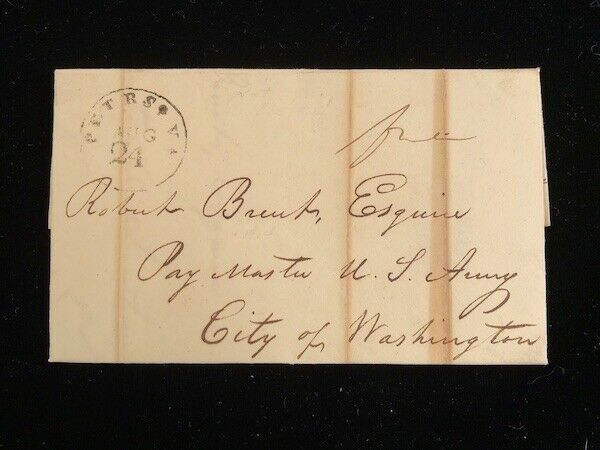 PETERSB. VA
AUG
24
free
Robert Brent, Esquire
Pay Master U. S. Army
City of Washington